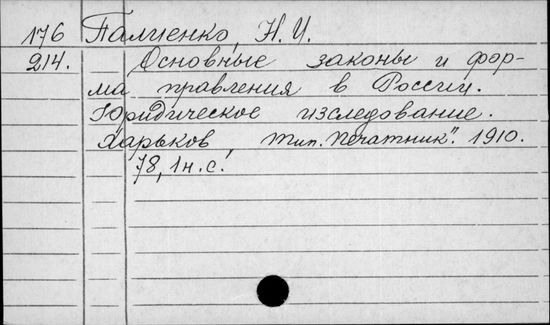 176 Палиенко, Н. И.
214. Основные законы и фор-
ма правления в России.
Юридическое исследование.
Харьков, тип. "Печатник". 1910.
78, 1 н. с.